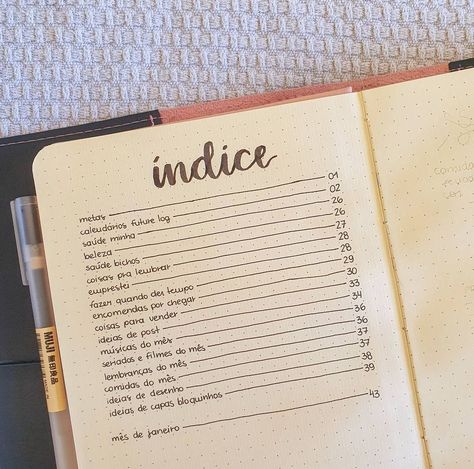 índice
metas 01
calendários future log 02
saúde minha 26
beleza 26
saúde bichos 27
coisas pra lembrar 28
emprestei 28
fazer quando der tempo 29
encomendas por chegar 30
coisas para vender 33
ideias de post 34
músicas do mês 36
seriados e filmes do mês 36
lembranças do mês 37
comidas do mês 37
ideias de desenho 38
ideias de capas bloquinhos 39
mês de janeiro 43
MUJI 無印良品